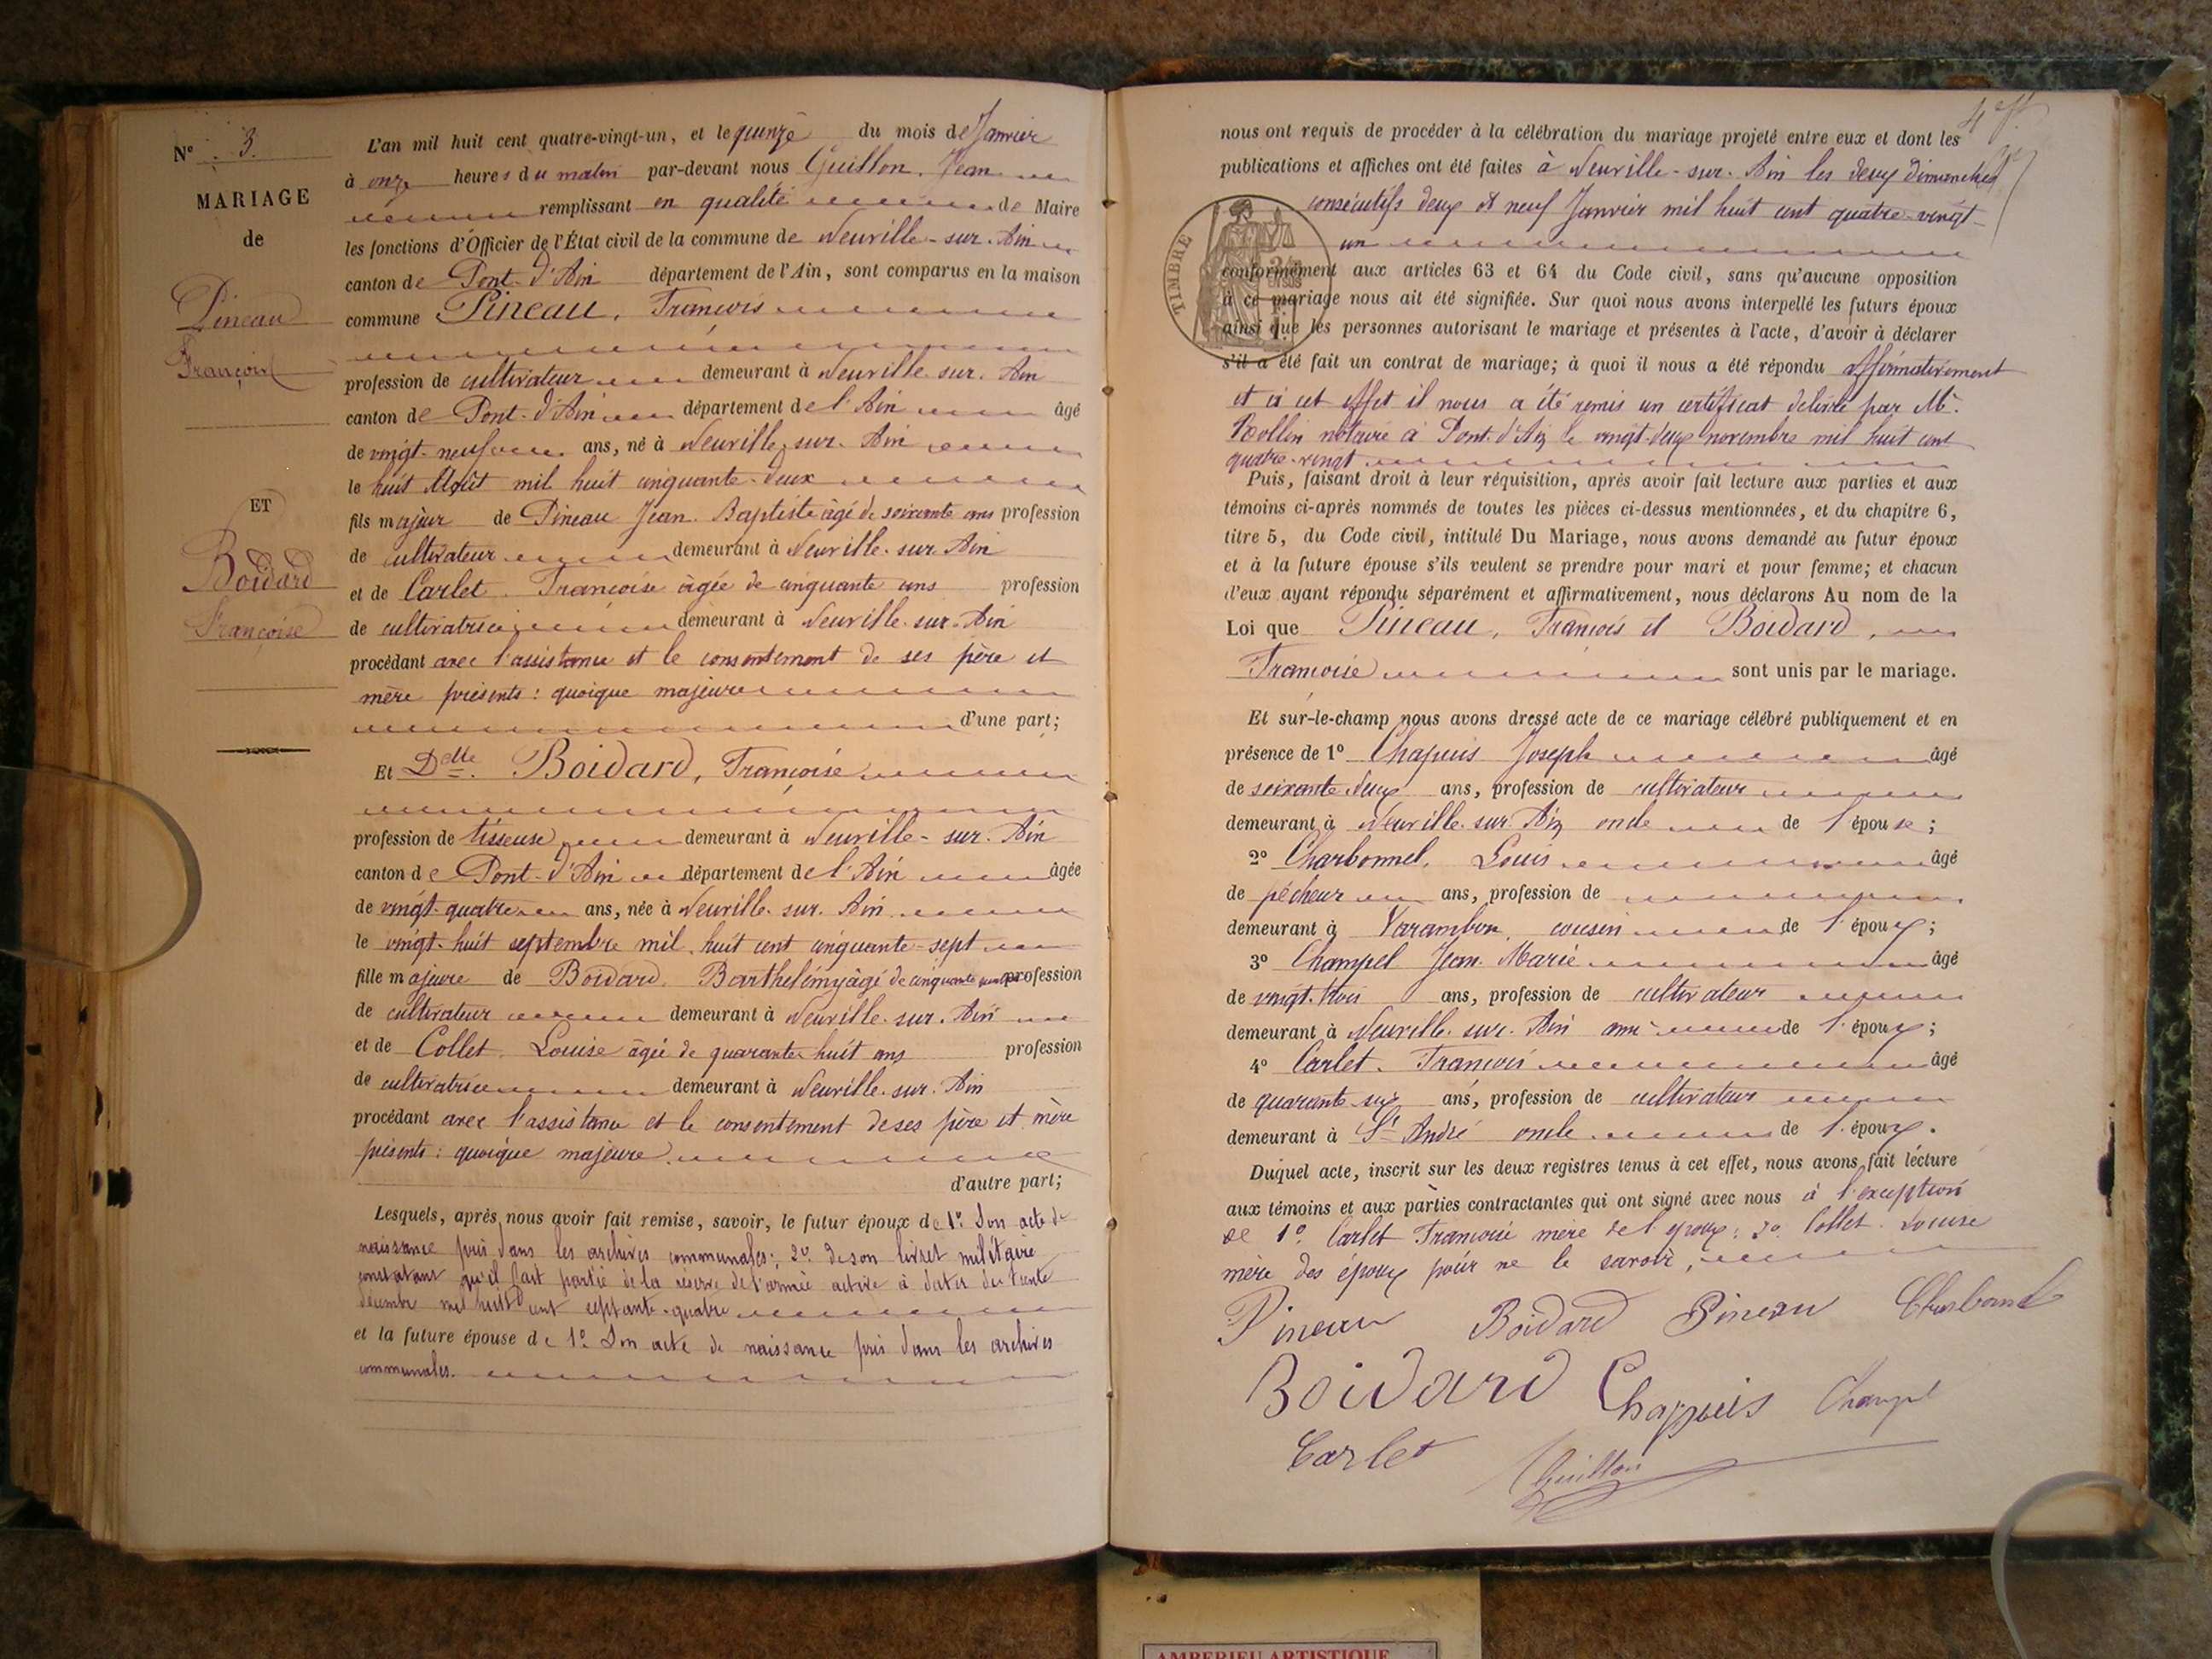 N° 3.
MARIAGE
de
Pineau
François
ET
Boidard
Françoise
L'an mil huit cent quatre-vingt-un, et le quinze du mois de Janvier
à onze heures du matin par-devant nous Guillon, Jean
remplissant en qualité de Maire
les fonctions d'Officier de l'État civil de la commune de Neuville-sur-Ain
canton de Pont-d'Ain département de l'Ain, sont comparus en la maison
commune Pineau, François
profession de cultivateur demeurant à Neuville-sur-Ain
canton de Pont-d'Ain département de l'Ain âgé
de vingt-neuf ans, né à Neuville-sur-Ain
le huit Août mil huit cinquante-deux
fils majeur de Pineau Jean-Baptiste âgé de soixante ans profession
de cultivateur demeurant à Neuville-sur-Ain
et de Carlet Françoise âgée de cinquante ans profession
de cultivatrice demeurant à Neuville-sur-Ain
procédant avec l'assistance et le consentement de ses père et
mère présents : quoique majeure
d'une part;
Et Delle Boidard, Françoise
profession de tisseuse demeurant à Neuville-sur-Ain
canton de Pont-d'Ain département de l'Ain âgée
de vingt-quatre ans, née à Neuville-sur-Ain
le vingt-huit septembre mil huit cent cinquante-sept
fille majeure de Boidard, Barthelémy âgé de cinquante profession
de cultivateur demeurant à Neuville-sur-Ain
et de Collet Louise âgée de quarante-huit ans profession
de cultivatrice demeurant à Neuville-sur-Ain
procédant avec l'assistance et le consentement de ses père et mère
présents : quoique majeure
d'autre part;
Lesquels, après nous avoir fait remise, savoir, le futur époux de 1° Son acte de
naissance pris dans les archives communales; 2° de son livret militaire
constatant qu'il fait partie de la réserve de l'armée active à dater du trente
décembre mil huit cent septante-quatre
et la future épouse de 1° Son acte de naissance pris dans les archives
communales.
nous ont requis de procéder à la célébration du mariage projeté entre eux et dont les
publications et affiches ont été faites à Neuville-sur-Ain les deux dimanches
consécutifs deux et neuf Janvier mil huit cent quatre-vingt-
un
TIMBRE
conformément aux articles 63 et 64 du Code civil, sans qu'aucune opposition
à ce mariage nous ait été signifiée. Sur quoi nous avons interpellé les futurs époux
ainsi que les personnes autorisant le mariage et présentes à l'acte, d'avoir à déclarer
s'il a été fait un contrat de mariage; à quoi il nous a été répondu affirmativement
et à cet effet il nous a été remis un certificat délivré par Me.
Rollin notaire à Pont-d'Ain le vingt-deux novembre mil huit cent
quatre-vingt
Puis, faisant droit à leur réquisition, après avoir fait lecture aux parties et aux
témoins ci-après nommés de toutes les pièces ci-dessus mentionnées, et du chapitre 6,
titre 5, du Code civil, intitulé Du Mariage, nous avons demandé au futur époux
et à la future épouse s'ils veulent se prendre pour mari et pour femme; et chacun
d'eux ayant répondu séparément et affirmativement, nous déclarons Au nom de la
Loi que Pineau, François et Boidard,
Françoise sont unis par le mariage.
Et sur-le-champ nous avons dressé acte de ce mariage célébré publiquement et en
présence de 1° Chapuis Joseph âgé
de soixante-deux ans, profession de cultivateur
demeurant à Neuville-sur-Ain oncle de l'épouse;
2° Charbonnel, Louis âgé
de pêcheur ans, profession de
demeurant à Varambon, cousin de l'époux;
3° Champel Jean-Marie âgé
de vingt-trois ans, profession de cultivateur
demeurant à Neuville-sur-Ain ami de l'époux;
4° Carlet, François âgé
de quarante-six ans, profession de cultivateur
demeurant à St André oncle de l'époux.
Duquel acte, inscrit sur les deux registres tenus à cet effet, nous avons fait lecture
aux témoins et aux parties contractantes qui ont signé avec nous à l'exception
de 1° Carlet Françoise mère de l'époux; 2° Collet Louise
mère des époux pour ne le savoir,
Pineau Boidard Pineau Charbonnel
Boidard Chappuis Champel
Carlet Guillon
AMBERIEU ARTISTIQUE